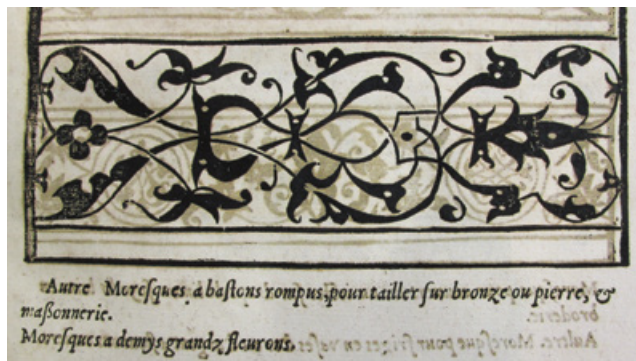 Autre Moreſques a baſtons rompus, pour tailler ſur bronze ou pierre, &
maßonnerie.
Moreſques a demys grandz fleurons.